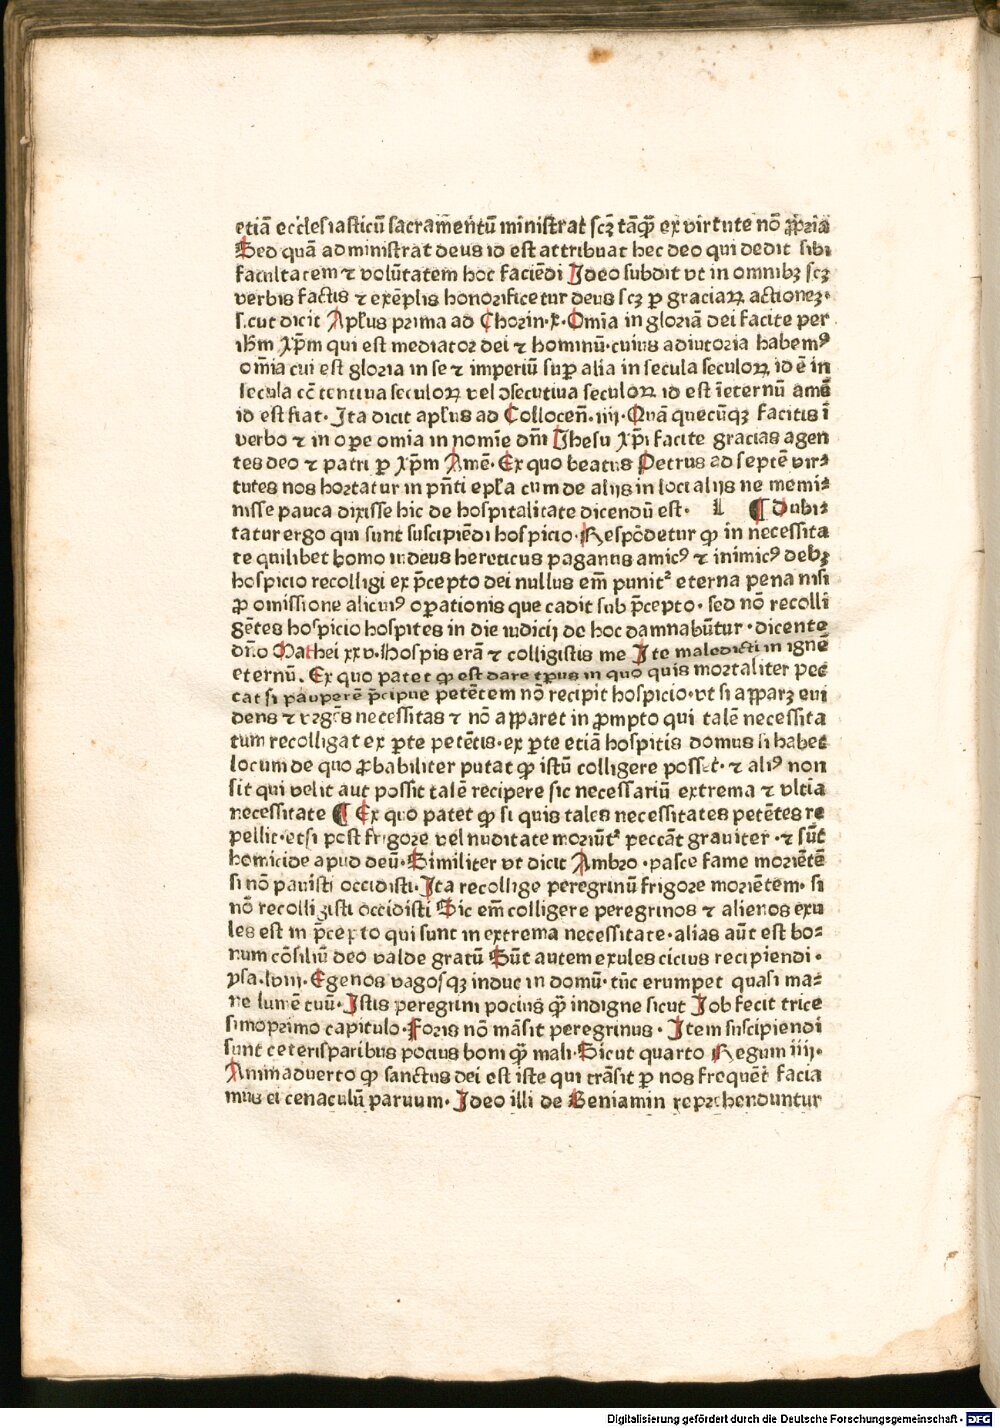 etiā ecclesiasticū sacramentū ministrat scꝫ tāꝙ̄ ex virtute nō ꝓpria
Sed quā administrat deus id est attribuat hec deo qui dedit sibi
facultatem ⁊ volūtatem hoc faciēdi Ideo subdit vt in omnibꝫ scꝫ
verbis factis ⁊ exēplis honorificetur deus scꝫ ꝑ graciaꝝ actioneꝫ·
sicut dicit Apl̄us prima ad Chorin·x·Om̄ia in gloriā dei facite per
ihm̄ xp̄m qui est mediator dei ⁊ hominū·cuius adiutoria habemꝰ
om̄ia cui est gloria in se ⁊ imperiū suꝑ alia in secula seculoꝝ id ē in
secula cōtentiua seculoꝝ vel ꝯsecutiua seculoꝝ id est īeternū amē
id est fiat· Ita dicit apl̄us ad Collocen̄·iiij·Quā quecūqꝫ facitis ī
verbo ⁊ in oꝑe omia in nomīe dn̄i Ihesu xp̄i facite gracias agen
tes deo ⁊ patri ꝑ xp̄m Amē· Ex quo beatus Petrus ad septē vir⸗
tutes nos hortatur in pn̄ti epl̄a cum de alijs in loci alijs ne memi⸗
nisse pauca dixisse hic de hospitalitate dicendū est· ¶ Dubi⸗
tatur ergo qui sunt suscipiēdi hospicio·Respōdetur ꝙ in necessita
te quilibet homo iudeus hereticus paganus amicꝰ ⁊ inimicꝰ debꝫ
hospicio recolligi ex p̄cepto dei nullus em̄ punit᷑ eterna pena nisi
ꝓ omissione alicuiꝰ oꝑationis que cadit sub p̄cepto· sed nō recolli
gētes hospicio hospites in die iudicij de hoc damnabūtur·dicente
dn̄o Mathei xxv·Hospis erā ⁊ colligistis me Ite maledicti in ignē
eternū. Ex quo patet ꝙ est dare tp̄us in quo quis mortaliter pec
cat si pauperē p̄cipue petētem nō recipit hospicio·vt si apparꝫ eui
dens ⁊ vrgēs necessitas ⁊ nō apparet in ꝓmpto qui talē necessita
tum recolligat ex ꝑte petētis·ex ꝑte etiā hospitis domus si habet
locum de quo ꝓbabiliter putat ꝙ istū colligere posset· ⁊ aliꝰ non
sit qui velit aut possit talē recipere sic necessariū extrema ⁊ vltīa
necessitate ¶ Ex quo patet ꝙ si quis tales necessitates petētes re
pellit·etsi post frigore vel nuditate moriūt᷑ peccāt grauiter·⁊ sūt
homicide apud deū·Similiter vt dicit Ambro·pasce fame moriētē
si nō pauisti occidisti·Ita recollige peregrinū frigore moriētem· si
nō recolligisti occidisti Sic em̄ colligere peregrinos ⁊ alienos exu
les est in p̄cepto qui sunt in extrema necessitate·alias aūt est bo⸗
num cōsiliū deo valde gratū Sūt autem exules cicius recipiendi·
psa.lviii·Egenos vagosqꝫ induc in domū·tūc erumpet quasi ma⸗
ne lumē tuū·Istis peregrini pocius ꝙ̄ indigne sicut Iob fecit trice
simoprimo capitulo·Foris nō māsit peregrinus·Item suscipiendi
sunt ceterisparibus pocius boni ꝙ̄ mali·Sicut quarto Regum iiij·
Animaduerto ꝙ sanctus dei est iste qui trāsit ꝑ nos frequēt̄ facia
mus ei cenaculū paruum·Ideo illi de Beniamin reprehenduntur
Digitalisierung gefördert durch die Deutsche Forschungsgemeinschaft - DFG